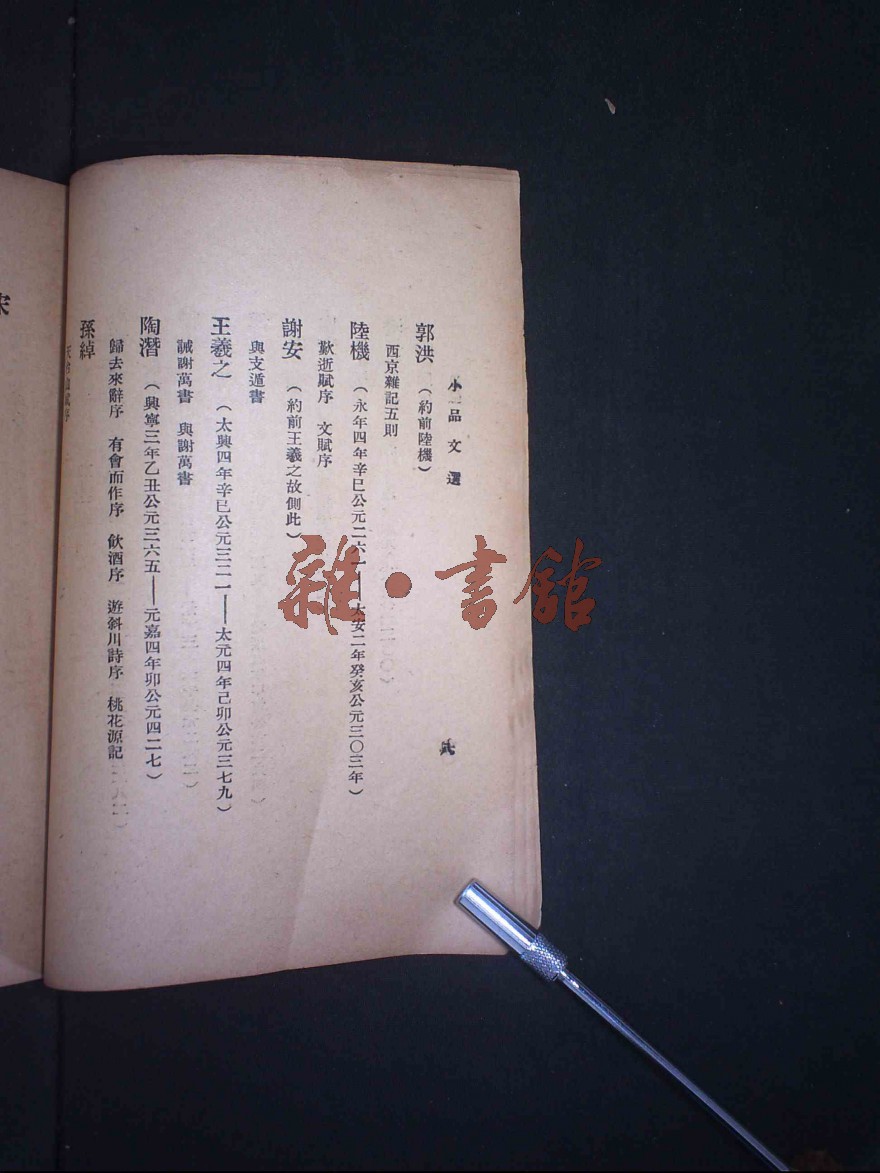 小品文選
貳
郭洪 （約前陸機）
西京雜記五則
陸機 （永年四年辛巳公元二六一——太安二年癸亥公元三〇三年）
歎逝賦序 文賦序
謝安 （約前王羲之故側此）
與支遁書
王羲之 （太興四年辛巳公元三二一——太元四年己卯公元三七九）
誡謝萬書 與謝萬書
陶潛 （興寧三年乙丑公元三六五——元嘉四年卯公元四二七）
歸去來辭序 有會而作序 飲酒序 遊斜川詩序 桃花源記
孫綽
宋
雜·書館